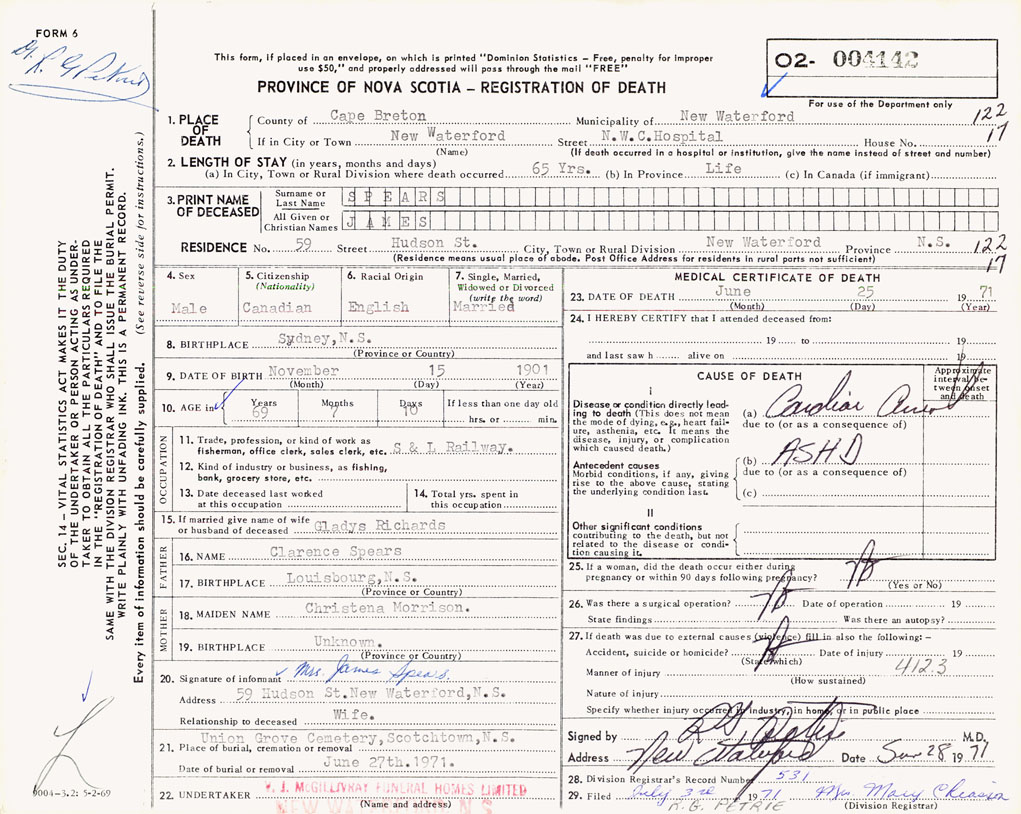 FORM 6
R G Petrie
This form, if placed in an envelope, on which is printed "Dominion Statistics – Free, penalty for improper
use $50," and properly addressed will pass through the mail "FREE"
PROVINCE OF NOVA SCOTIA – REGISTRATION OF DEATH
O2- 004142
For use of the Department only
1. PLACE OF DEATH
County of Cape Breton Municipality of New Waterford 122
If in City or Town New Waterford Street N.W.C.Hospital House No. 17
(Name) (If death occurred in a hospital or institution, give the name instead of street and number)
2. LENGTH OF STAY (in years, months and days)
(a) In City, Town or Rural Division where death occurred 65 Yrs. (b) In Province Life (c) In Canada (if immigrant)
3. PRINT NAME OF DECEASED
Surname or Last Name SPEARS
All Given or Christian Names JAMES
RESIDENCE No. 59 Street Hudson St. City, Town or Rural Division New Waterford Province N.S. 122
(Residence means usual place of abode. Post Office Address for residents in rural parts not sufficient) 17
4. Sex
Male
5. Citizenship
(Nationality)
Canadian
6. Racial Origin
English
7. Single, Married,
Widowed or Divorced
(write the word)
Married
8. BIRTHPLACE Sydney,N.S.
(Province or Country)
9. DATE OF BIRTH November 15 1901
(Month) (Day) (Year)
10. AGE in Years Months Days If less than one day old
69 7 10 hrs. or min.
OCCUPATION
11. Trade, profession, or kind of work as
fisherman, office clerk, sales clerk, etc. S & L Railway.
12. Kind of industry or business, as fishing,
bank, grocery store, etc.
13. Date deceased last worked
at this occupation
14. Total yrs. spent in
this occupation
15. If married give name of wife
or husband of deceased Gladys Richards
FATHER
16. NAME Clarence Spears
17. BIRTHPLACE Louisbourg,N.S.
(Province or Country)
MOTHER
18. MAIDEN NAME Christena Morrison.
19. BIRTHPLACE Unknown.
(Province or Country)
20. Signature of informant Mrs. James Spears.
Address 59 Hudson St.New Waterford,N.S.
Relationship to deceased Wife.
21. Place of burial, cremation or removal Union Grove Cemetery,Scotchtown,N.S.
Date of burial or removal June 27th.1971.
22. UNDERTAKER V. J. McGILLIVRAY FUNERAL HOMES LIMITED
NEW WATERFORD N S
(Name and address)
MEDICAL CERTIFICATE OF DEATH
23. DATE OF DEATH June 25 1971
(Month) (Day) (Year)
24. I HEREBY CERTIFY that I attended deceased from:
19 to 19
and last saw h alive on 19
CAUSE OF DEATH
Approximate
interval be-
tween onset
and death
I
Disease or condition directly lead-
ing to death (This does not mean
the mode of dying, e.g., heart fail-
ure, asthenia, etc. It means the
disease, injury, or complication
which caused death.)
(a) Cardiac Arrest
due to (or as a consequence of)
Antecedent causes
Morbid conditions, if any, giving
rise to the above cause, stating
the underlying condition last.
(b) ASHD
due to (or as a consequence of)
(c)
II
Other significant conditions
contributing to the death, but not
related to the disease or condi-
tion causing it.
25. If a woman, did the death occur either during
pregnancy or within 90 days following pregnancy? No
(Yes or No)
26. Was there a surgical operation? No Date of operation 19
State findings Was there an autopsy?
27. If death was due to external causes (violence) fill in also the following: –
Accident, suicide or homicide? Date of injury 19
(State which) 412.3
Manner of injury
(How sustained)
Nature of injury
Specify whether injury occurred in industry, in home, or in public place
Signed by R G Petrie M.D.
Address New Waterford Date Jun 28 1971
28. Division Registrar's Record Number 531
29. Filed July 3rd 1971 Mrs. Mary Chiasson
R.G. PETRIE (Division Registrar)
SEC. 14 – VITAL STATISTICS ACT MAKES IT THE DUTY
OF THE UNDERTAKER OR PERSON ACTING AS UNDER-
TAKER TO OBTAIN ALL THE PARTICULARS REQUIRED
IN THE "REGISTRATION OF DEATH" AND TO FILE THE
SAME WITH THE DIVISION REGISTRAR WHO SHALL ISSUE THE BURIAL PERMIT.
WRITE PLAINLY WITH UNFADING INK. THIS IS A PERMANENT RECORD.
Every item of information should be carefully supplied. (See reverse side for instructions.)
0004-3.2: 5-2-69